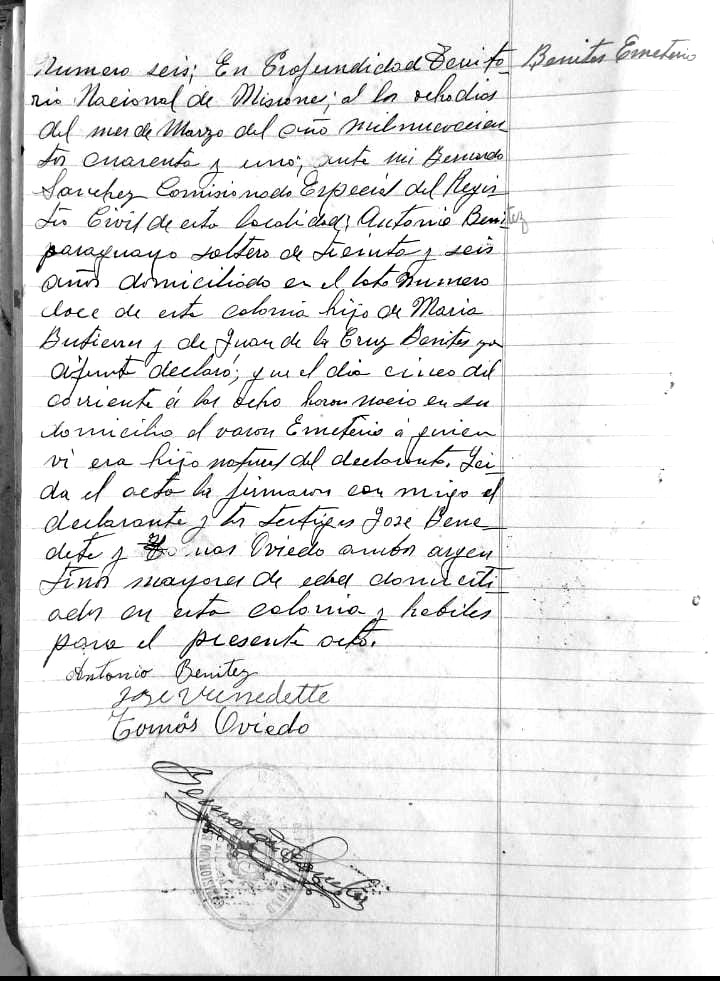 Numero seis; En Profundidad Territo- Benites Emeterio
rio Nacional de Misiones; a los ocho dias
del mes de Marzo del año mil nuevecien
tos cuarenta y uno; ante mi Bernardo
Sanchez Comisionado Especial del Regis
tro Civil de esta localidad; Antonio Benitez
paraguayo soltero de treinta y seis
años domiciliado en el lote numero
doce de esta colonia hijo de Maria
Gutierrez y de Juan de la Cruz Benites ya
difunto declaró; que el dia cinco del
corriente á las ocho horas nacio en su
domicilio el varon Emeterio á quien
vi era hijo natural del declarante. Lei-
da el acta la firmaron con migo el
declarante y los testigos Jose Bene
dete y Tomas Oviedo ambos argen
tinos mayores de edad domicili
ados en esta colonia y habiles
para el presente acto.
Antonio Benitez
Jose Venedette
Tomás Oviedo
Bernardo Sanchez